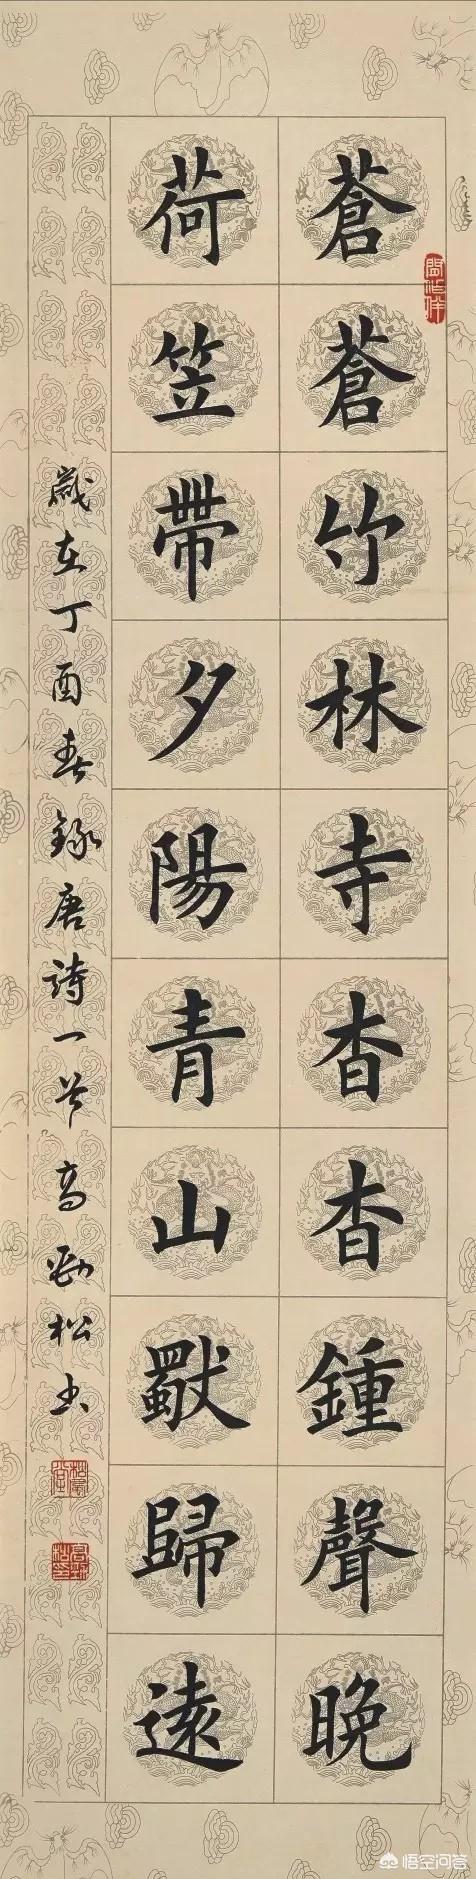 蒼蒼竹林寺杳杳鍾聲晚
荷笠帶夕陽青山獨歸遠
歲在丁酉春錄唐詩一首高勁松書
悟空问答